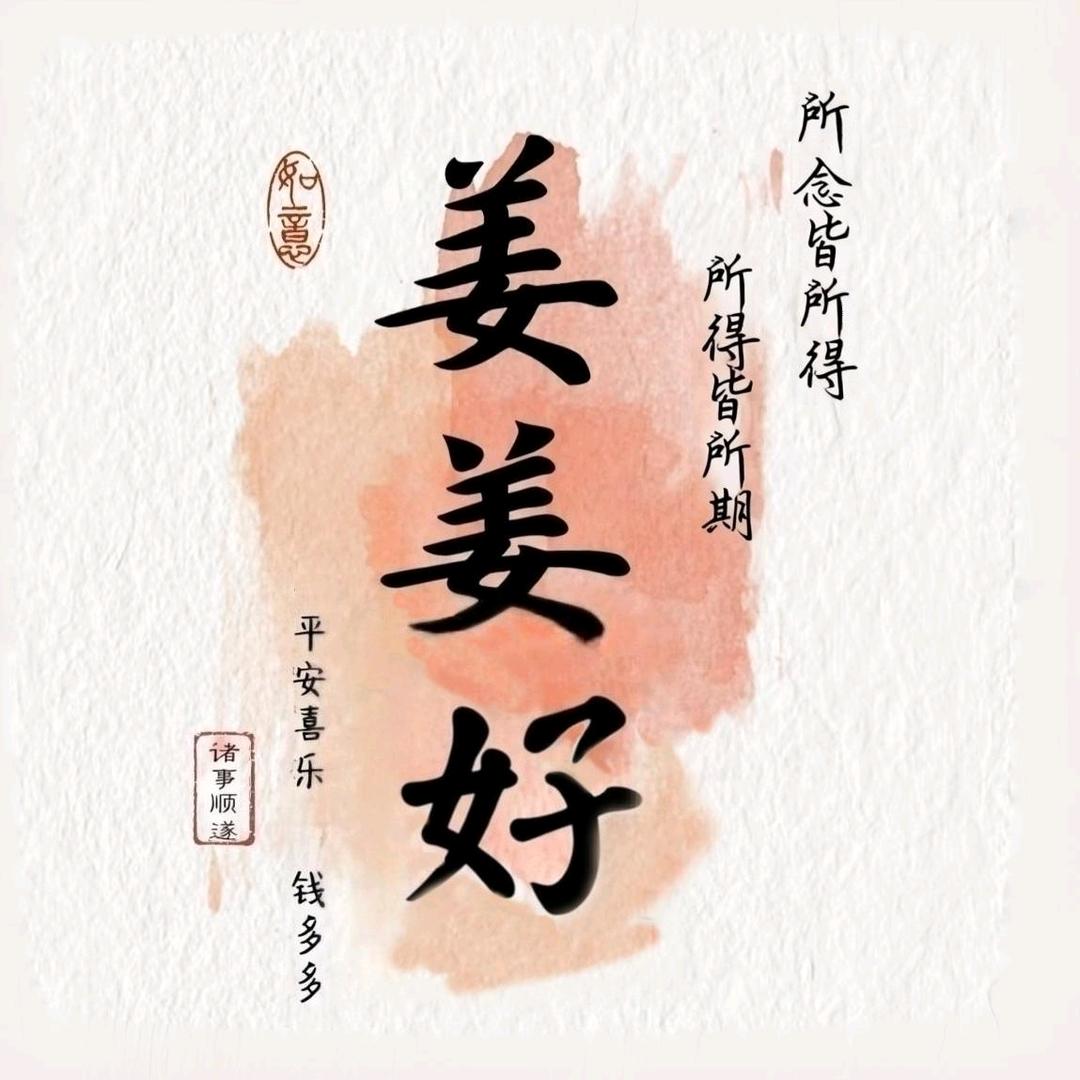 所念皆所得
所得皆所期
姜姜好
如意
平安喜乐
钱多多
诸事顺遂